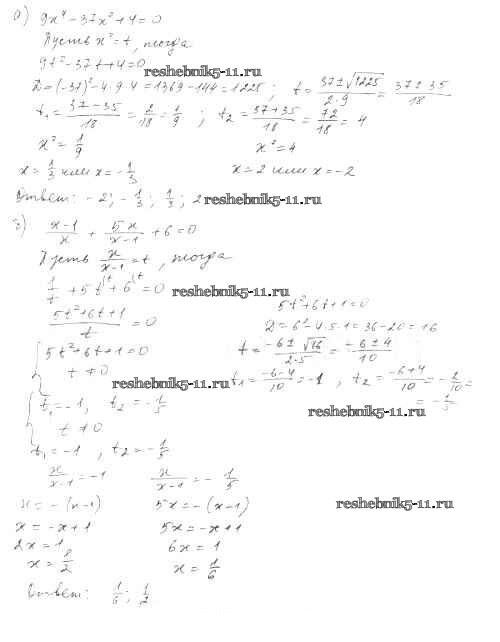 а) 9x⁴ - 37x² + 4 = 0
Пусть x² = t, тогда
9t² - 37t + 4 = 0
reshebnik5-11.ru
D = (-37)² - 4·9·4 = 1369 - 144 = 1225 ; t = (37 ± √1225)/(2·9) = (37 ± 35)/18
t₁ = (37 - 35)/18 = 2/18 = 1/9 ; t₂ = (37 + 35)/18 = 72/18 = 4
x² = 1/9 x² = 4
x = 1/3 или x = -1/3 x = 2 или x = -2
Ответ: -2; -1/3; 1/3; 2 reshebnik5-11.ru
з) (x-1)/x + 5x/(x-1) + 6 = 0
Пусть x/(x-1) = t, тогда
1/t + 5t^(t + 6^(t = 0 reshebnik5-11.ru
(5t² + 6t + 1)/t = 0 5t² + 6t + 1 = 0
D = 6² - 4·5·1 = 36 - 20 = 16
{ 5t² + 6t + 1 = 0 t = (-6 ± √16)/(2·5) = (-6 ± 4)/10
t ≠ 0 reshebnik5-11.ru t₁ = (-6-4)/10 = -1 , t₂ = (-6+4)/10 = -2/10 =
{ t₁ = -1, t₂ = -1/5 = -1/5
t ≠ 0
t₁ = -1 , t₂ = -1/5
x/(x-1) = -1 x/(x-1) = -1/5
x = -(x-1) 5x = -(x-1) reshebnik5-11.ru
x = -x+1 5x = -x+1
2x = 1 6x = 1
x = 1/2 x = 1/6
Ответ: 1/6; 1/2